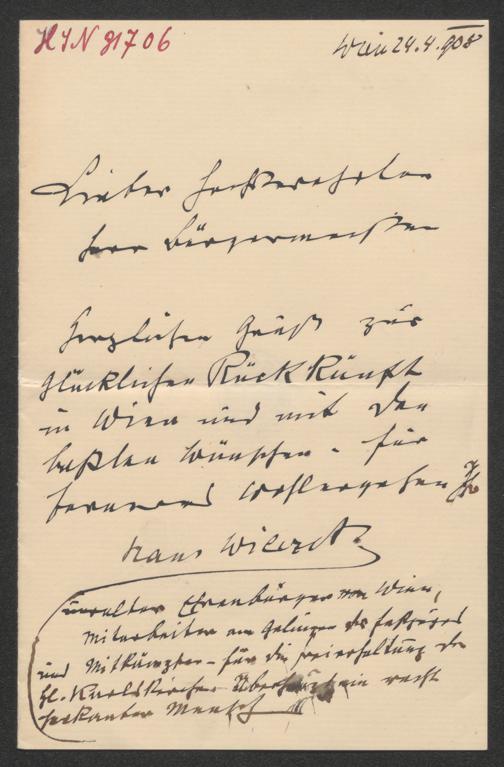 HIN 91706
Wien 24.4.908
Lieber hochverehrter
Herr Bürgermeister
Herzlichen Gruß zur
glücklichen Rückkunft
in Wien und mit den
beßten Wünschen für
ferneres Wohlergehen Ihr
Hans Wilczek
uralter Ehrenbürger von Wien,
Mitarbeiter am Gelingen des Festzuges
und Mitkämpfer für die Freihaltung der
hl. Karlskirche. Überhaupt ein recht
Mensch